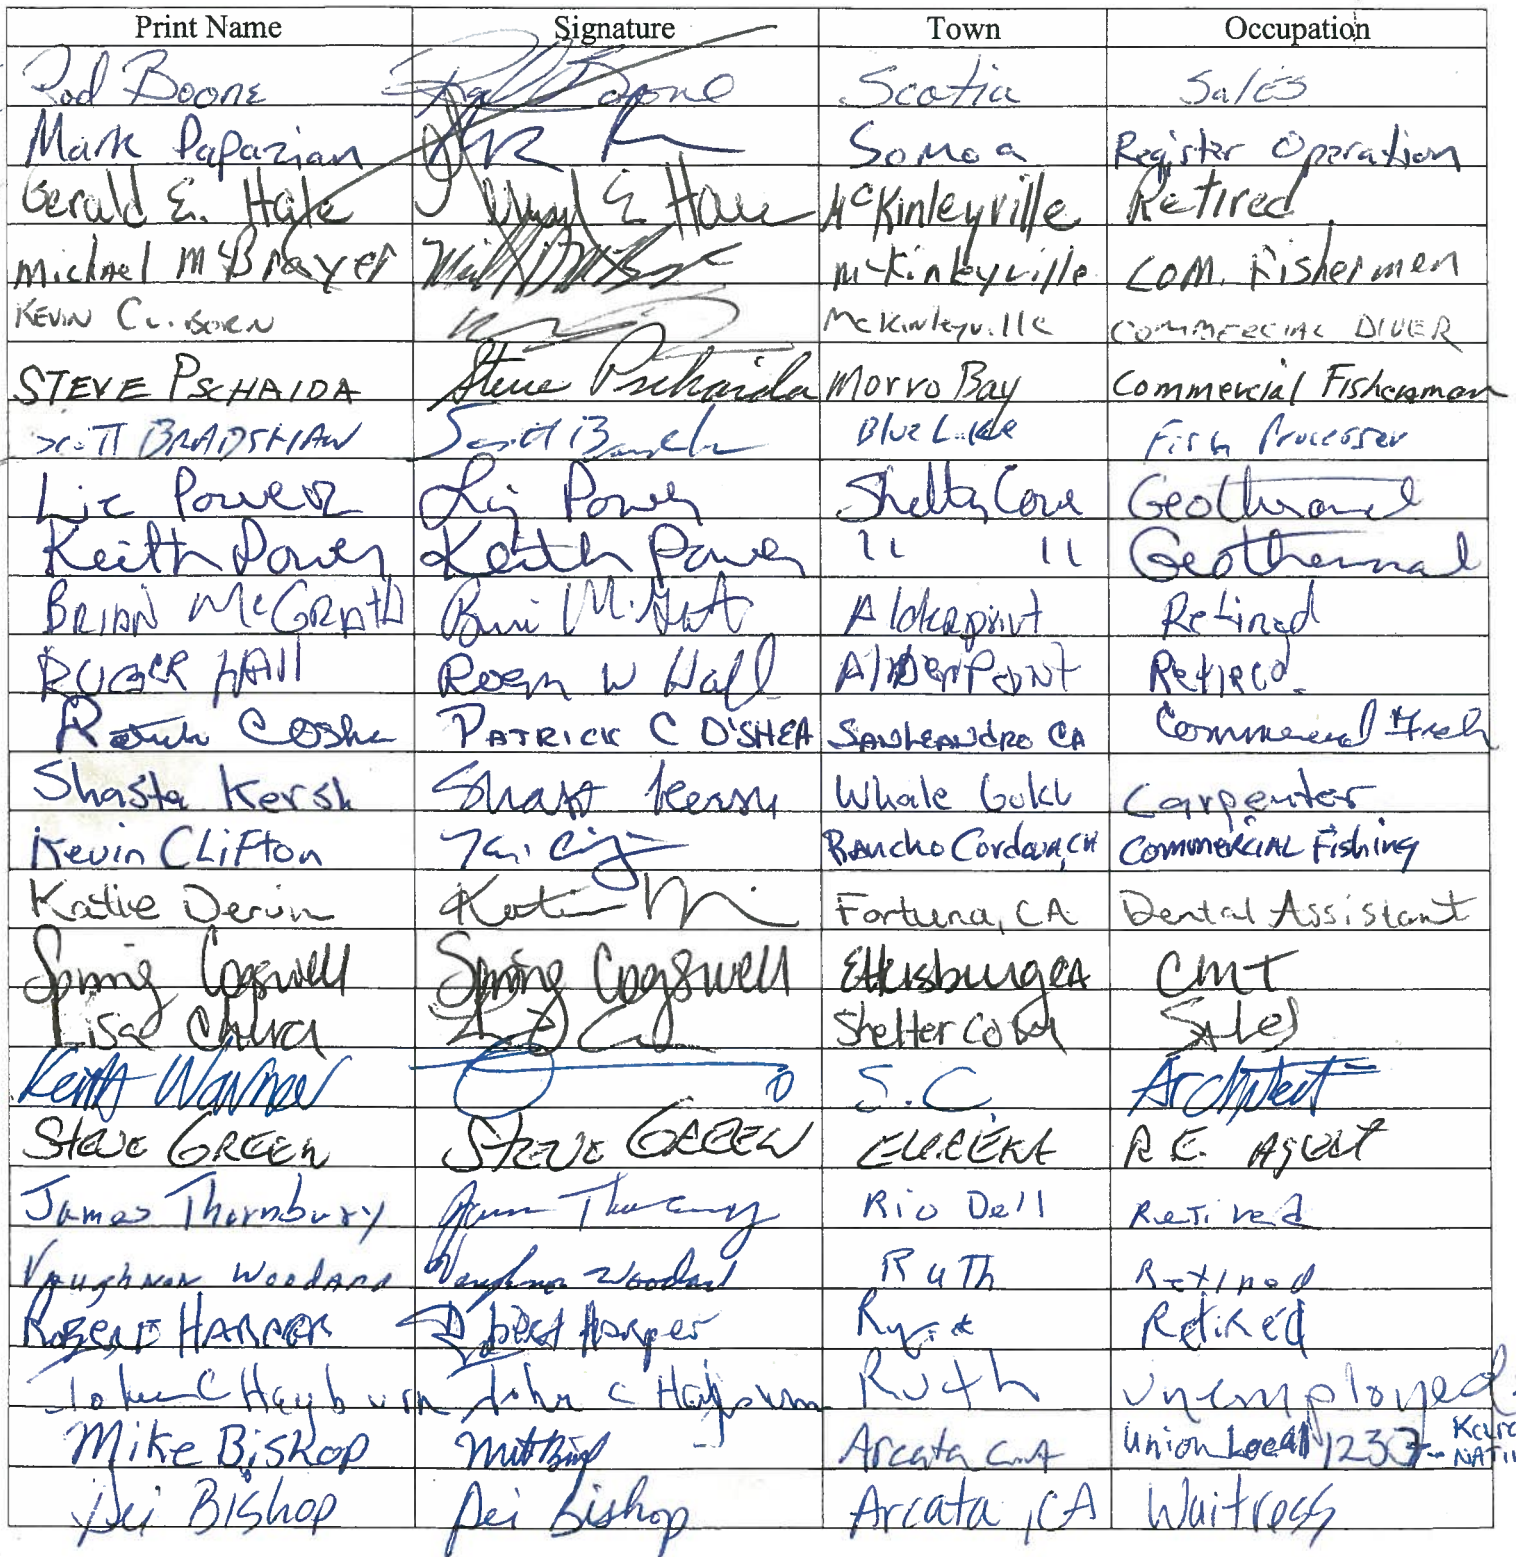 Print Name Signature Town Occupation
Rod Boone Rod Boone Scotia Sales
Mark Papazian Somoa Register Operation
Gerald E. Hale E Hale McKinleyville Retired
Michael McBrayer McKinleyville Com. Fishermen
KEVIN CLIBORN McKinleyville COMMERCIAL DIVER
STEVE PSCHAIDA Steve Pschaida Morro Bay Commercial Fisherman
SCOTT BRADSHAW Scott Blue Lake Fish Processor
Liz Power Liz Power Shelter Cove Geothermal
Keith Power Keith Power " " Geothermal
BRIAN McGRATH Alderpoint Retired
ROGER HALL Roger W Hall AlderPoint Retired.
Patrick PATRICK C O'SHEA SAN LEANDRO CA Commercial Fish
Shasta Kersh Shasta Kersh Whale Carpenter
Kevin CLiFton Rancho Cordova, CA COMMERCIAL Fishing
Katie Katie Fortuna, CA Dental Assistant
Spring Cogswell Spring Cogswell Ettersburg CA CMT
Lisa Shelter Cove Sales
Keith S.C. Architect
STEVE GREEN STEVE GREEN EUREKA R.E. Agent
James Thornbury Rio Dell Retired
Vaughnan Woodard Vaughnan Woodard Ruth Retired
ROBERT HARPER Robert Harper Retired
John C Hayburn John C Hayburn Ruth Unemployed
Mike Bishop Arcata CA Union Local
Bishop Bishop Arcata, CA Waitress